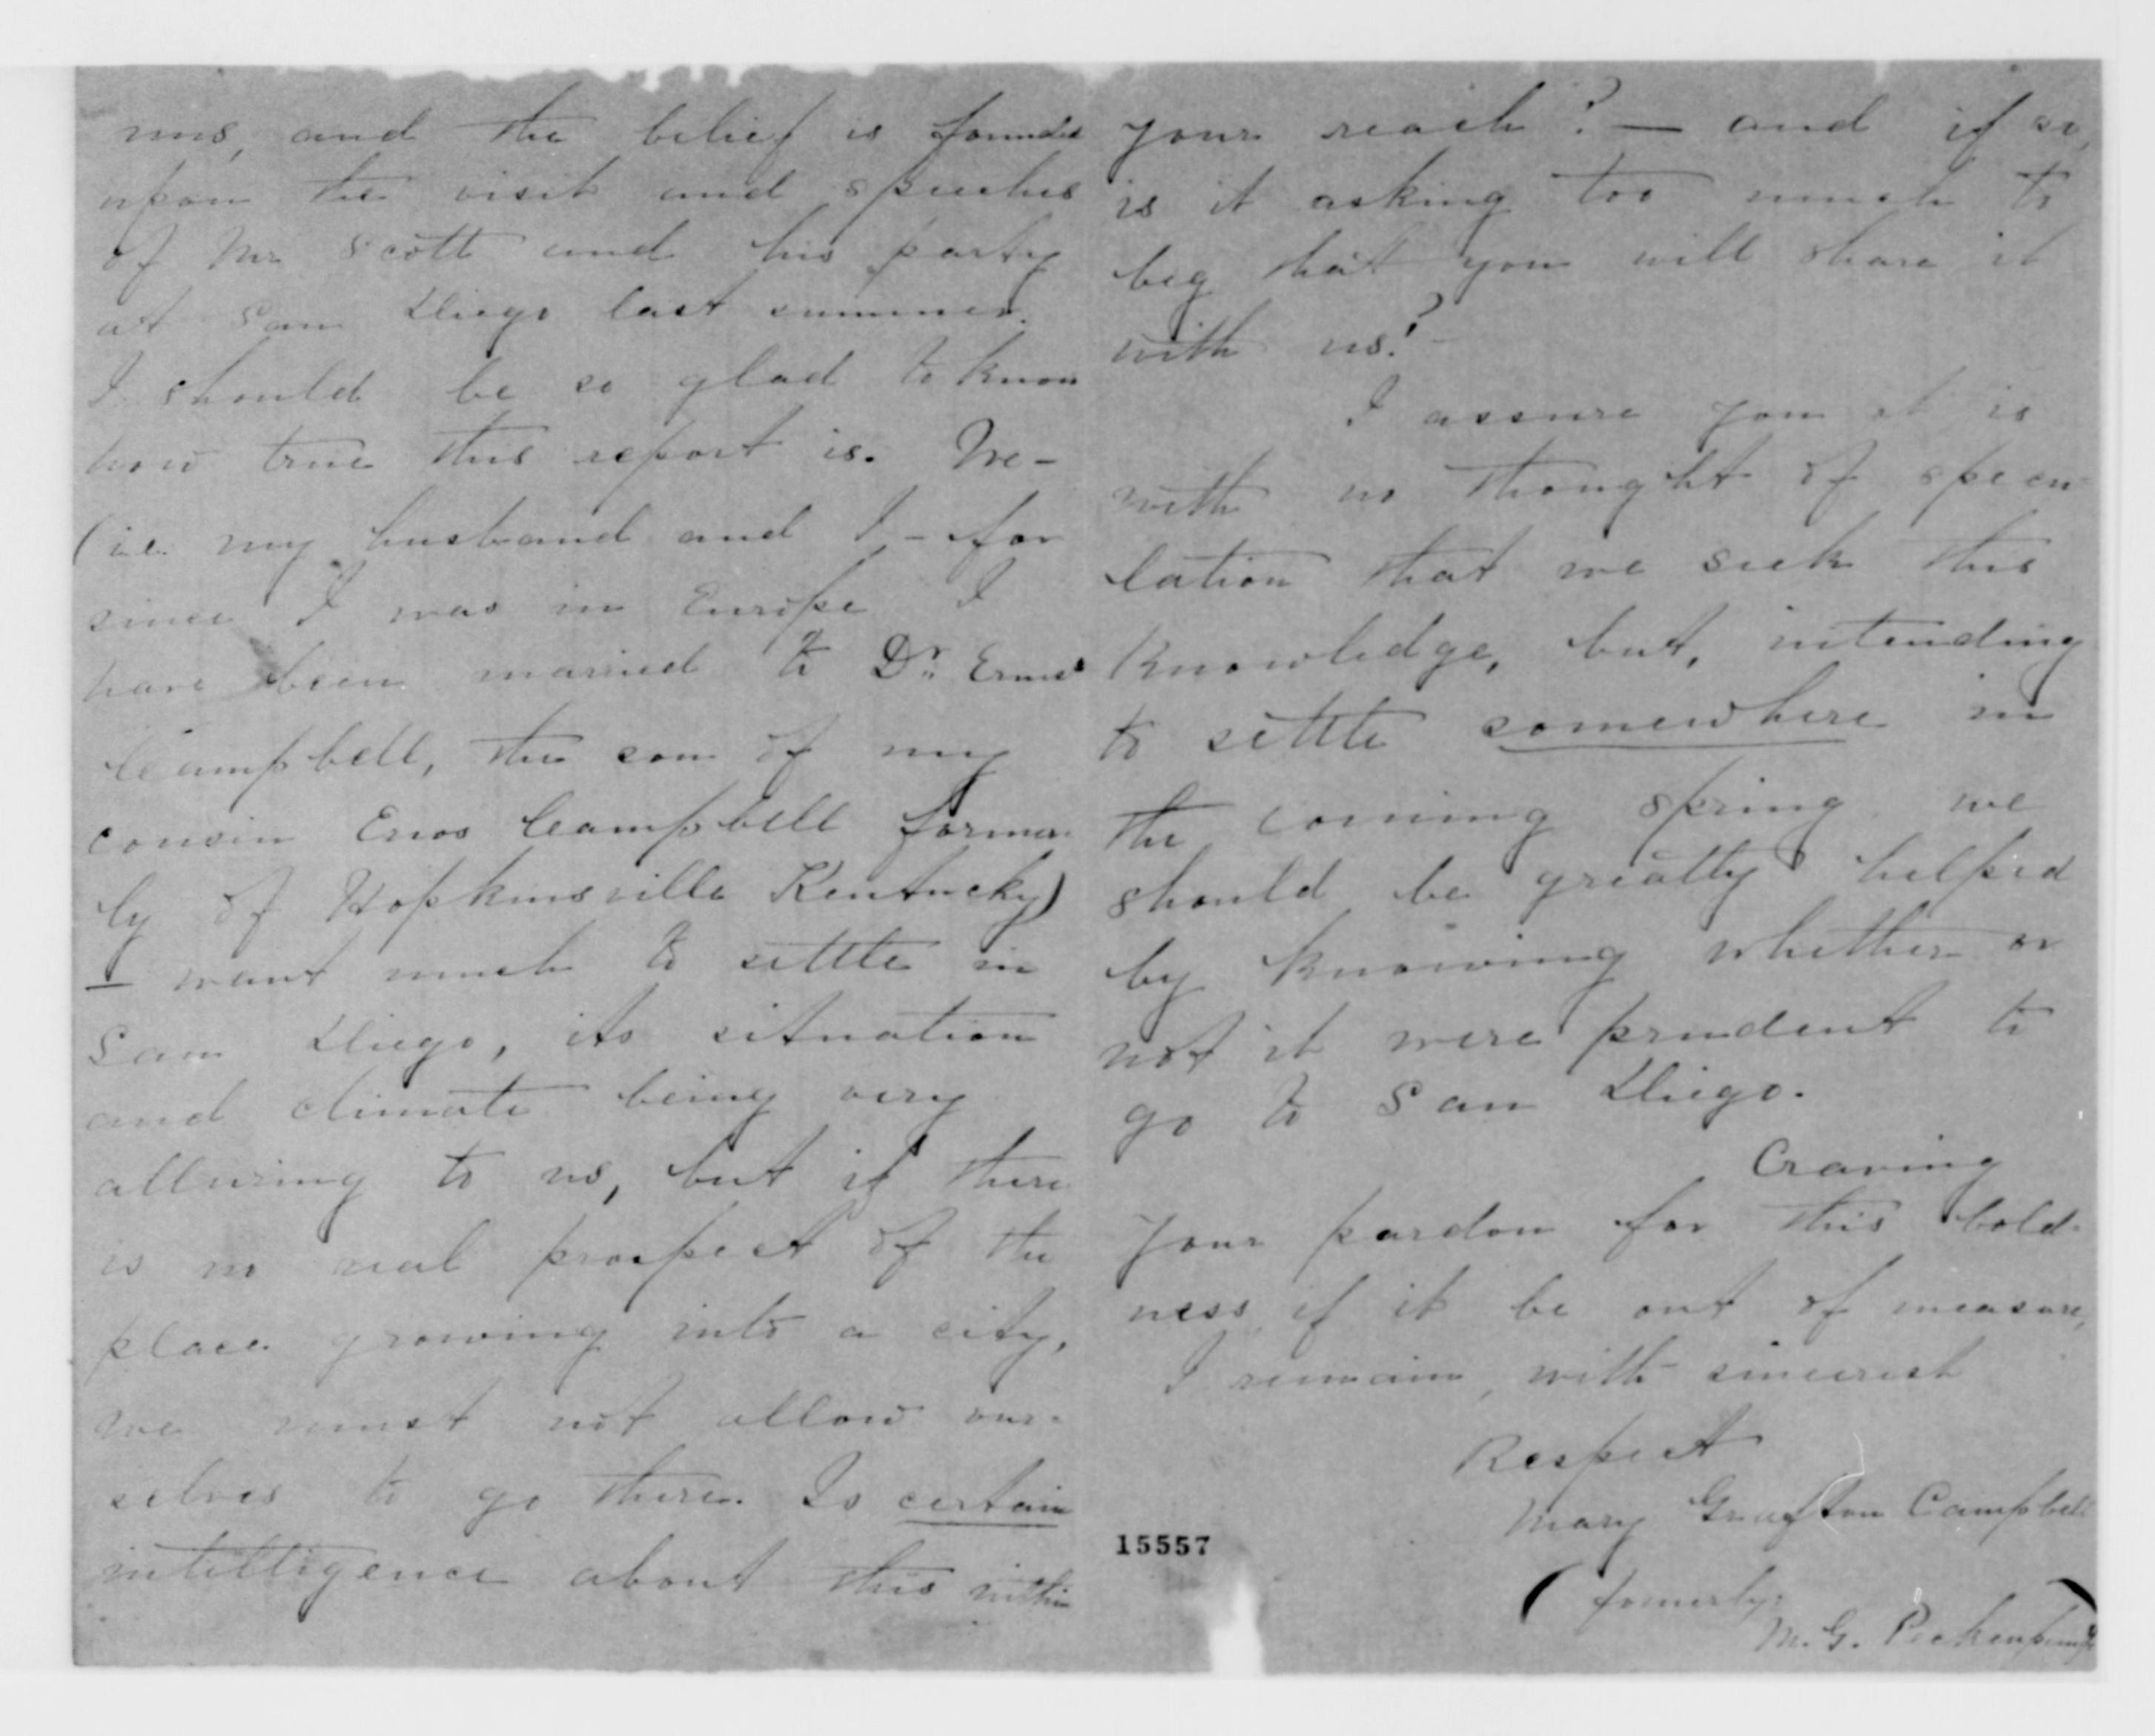 nus, and the belief is founded
upon the visit and speeches
of Mr Scott and his party
at San Diego last summer.
I should be so glad to know
how true this report is. We-
(i.e. my husband and I - for
since I was in Europe I
have been married to Dr.
Campbell, the son of my
cousin Enos Campbell former
ly of Hopkinsville Kentucky)
- want much to settle in
San Diego, its situation
and climate being very
alluring to us, but if there
is no real prospect of the
place growing into a city,
we must not allow our-
selves to go there. Is certain
intelligence about this within
your reach? — and if so,
is it asking too much to
beg that you will share it
with us? -
I assure you it is
with no thought of specu-
lation that we seek this
knowledge, but, intending
to settle somewhere in
the coming spring we
should be greatly helped
by knowing whether or
not it were prudent to
go to San Diego.
Craving
your pardon for this bold-
ness if it be out of measure,
I remain, with sincerest
Respect
Mary Grafton Campbell
(formerly
M. G. )
15557